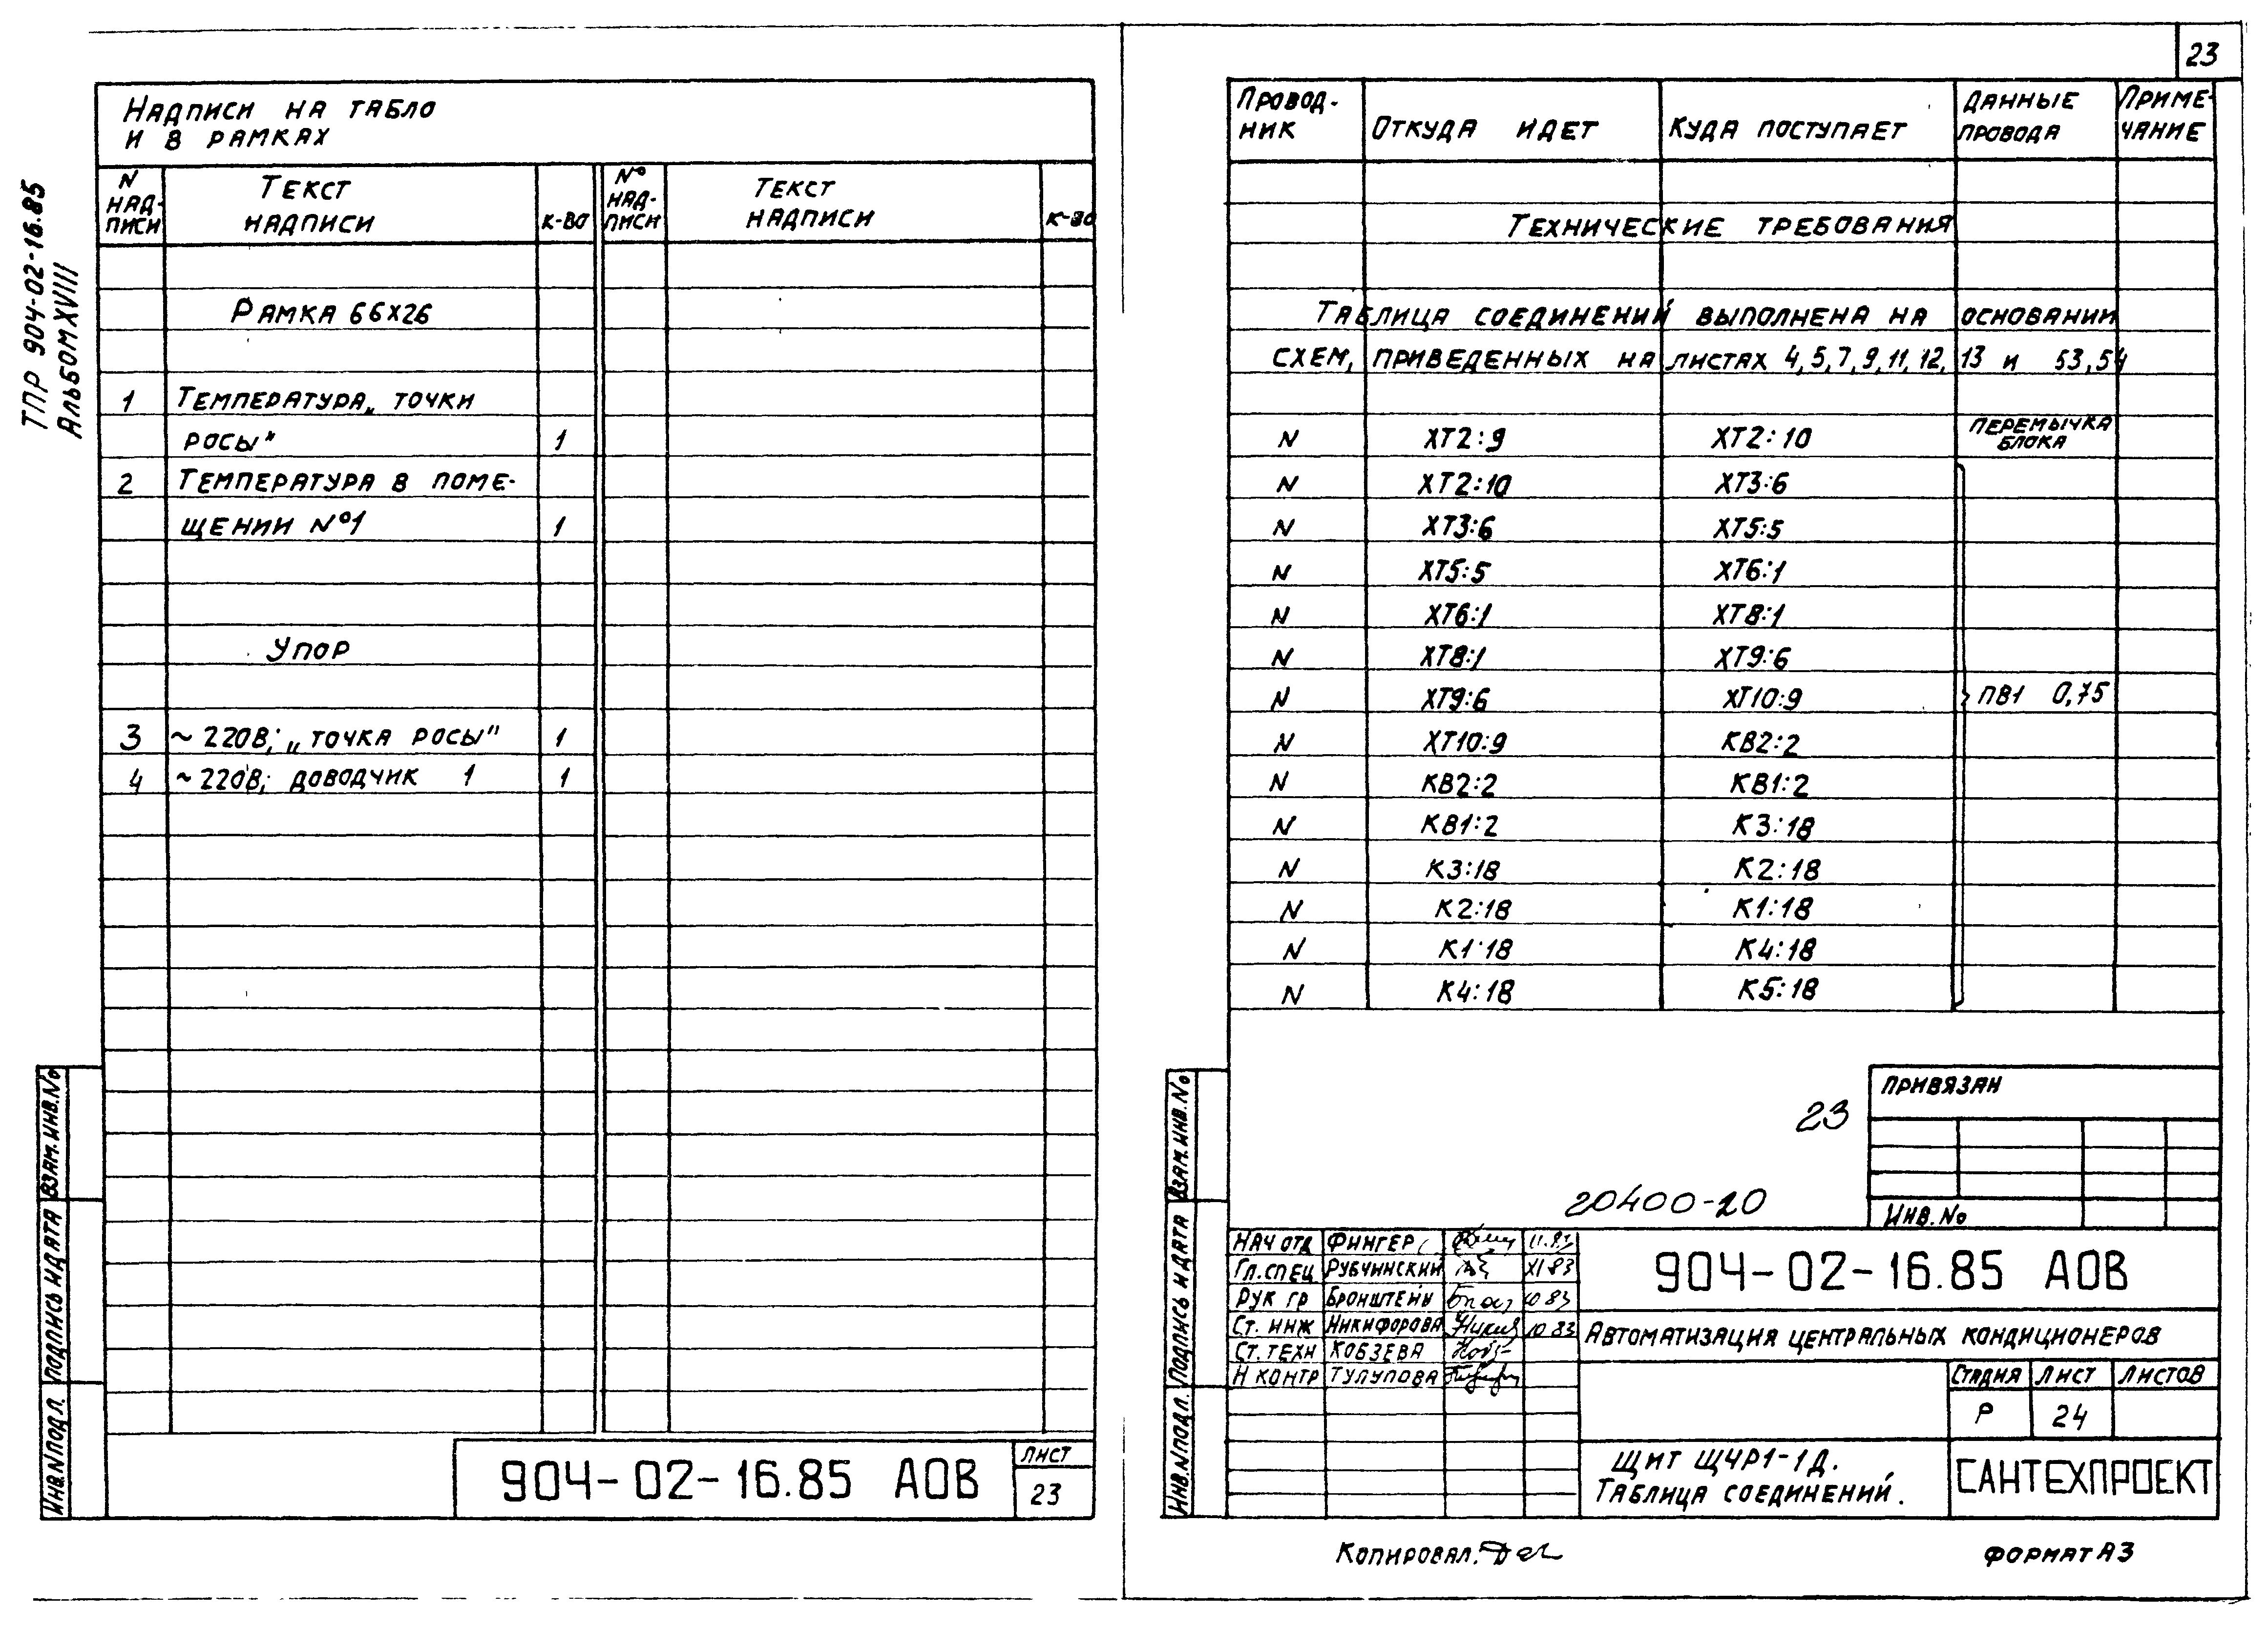 23
ТПР 904-02-16.85
Альбом XVIII
Надписи на табло
и в рамках
N надписи Текст надписи к-во N° надписи Текст надписи к-во
Рамка 66х26
1 Температура „точки
росы" 1
2 Температура в поме-
щении N°1 1
Упор
3 ~220В; „точка росы" 1
4 ~220В; доводчик 1 1
Инв.N подл. Подпись и дата Взам.инв.No
904-02-16.85 АОВ
Лист
23
Провод-
ник Откуда идет Куда поступает Данные
провода Приме-
чание
Технические требования
Таблица соединений выполнена на основании
схем, приведенных на листах 4,5,7,9,11,12,13 и 53,54
N ХТ2:9 ХТ2:10 перемычка
блока
N ХТ2:10 ХТ3:6
N ХТ3:6 ХТ5:5
N ХТ5:5 ХТ6:1
N ХТ6:1 ХТ8:1
N ХТ8:1 ХТ9:6
N ХТ9:6 ХТ10:9 ПВ1 0,75
N ХТ10:9 КВ2:2
N КВ2:2 КВ1:2
N КВ1:2 К3:18
N К3:18 К2:18
N К2:18 К1:18
N К1:18 К4:18
N К4:18 К5:18
Инв.N подл. Подпись и дата Взам.инв.No
Привязан
23
20400-20
Инв.No
Нач отд Фингер
Гл.спец Рубчинский XI 83
Рук гр Бронштейн 10 83
Ст. инж Никифорова 10 83
Ст. техн Кобзева
Н контр Тулупова
904-02-16.85 АОВ
Автоматизация центральных кондиционеров
Стадия Лист Листов
Р 24
Щит ЩЧР1-1Д.
Таблица соединений.
САНТЕХПРОЕКТ
Копировал.
Формат А3